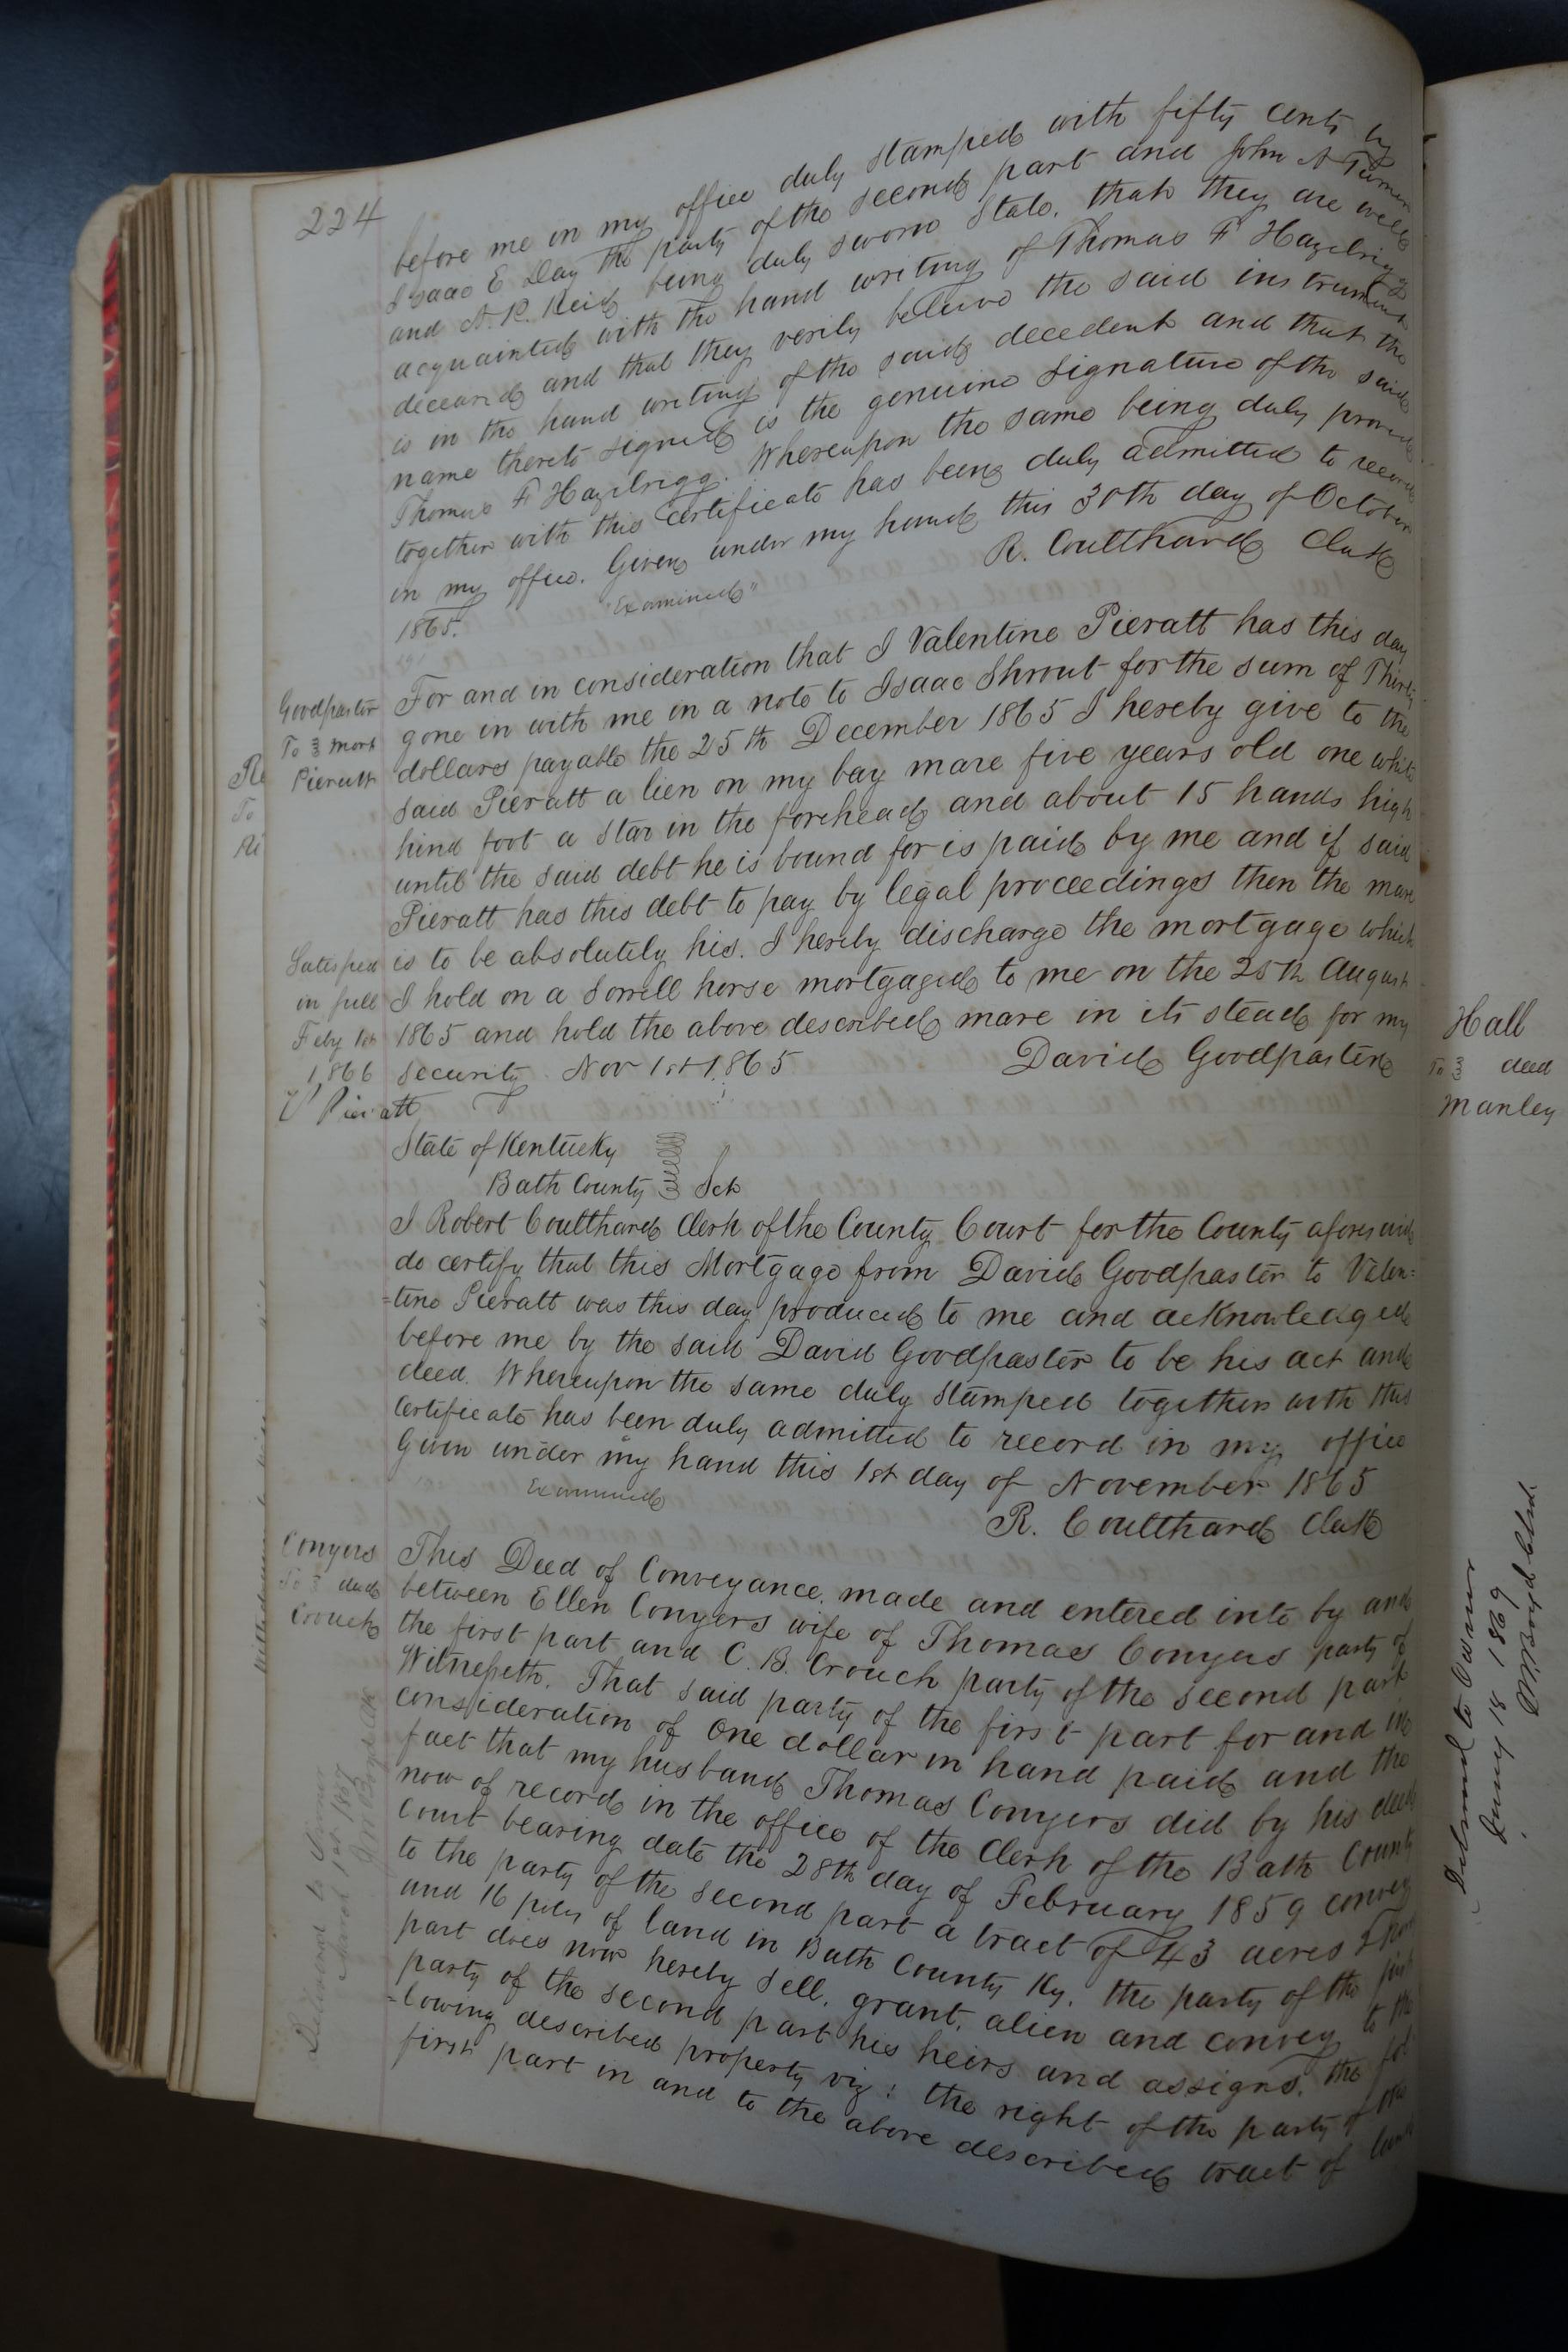 224
before me in my office duly stamped with fifty cents by
Isaac E Day the party of the second part and John A Turner
and A. R. Reid being duly sworn State. that they are well
acquainted with the hand writing of Thomas F Hazelrigg
deceased and that they verily believe the said instrument
is in the hand writing of the said decedent and that the
name thereto signed is the genuine signature of the said
Thomas F Hazelrigg. Whereupon the same being duly proved
together with this Certificate has been duly admitted to record
in my office. Given under my hand this 30th day of October
1865.
R. Coulthard Clerk
"Examined"
Goodpaster
To } Mort
Pieratt
For and in consideration that I Valentine Pieratt has this day
gone in with me in a note to Isaac Shrout for the sum of Thirty
dollars payable the 25th December 1865 I hereby give to the
said Pieratt a lien on my bay mare five years old one white
hind foot a star in the forehead and about 15 hands high
until the said debt he is bound for is paid by me and if said
Pieratt has this debt to pay by legal proceedings then the mare
is to be absolutely his. I hereby discharge the mortgage which
I hold on a Sorrell horse mortgaged to me on the 25th August
1865 and hold the above described mare in its stead for my
security Nov 1st 1865
David Goodpaster
Satisfied
in full
Feby 1st
1866
V Pieratt
State of Kentucky
Bath County } Sct
I Robert Coulthard Clerk of the County Court for the County aforesaid
do certify that this Mortgage from David Goodpaster to Valen=
=tine Pieratt was this day produced to me and acknowledged
before me by the said David Goodpaster to be his act and
deed. Whereupon the same duly stamped together with this
Certificate has been duly admitted to record in my office
Given under my hand this 1st day of November 1865
Examined
R. Coulthard Clerk
Conyers
To } deed
Crouch
This Deed of Conveyance. made and entered into by and
between Ellen Conyers wife of Thomas Conyers party of
the first part and C. B. Crouch party of the second part
Witnesseth. That said party of the first part for and in
consideration of One dollar in hand paid and the
fact that my husband Thomas Conyers did by his deed
now of record in the office of the Clerk of the Bath County
Court bearing date the 28th day of February 1859 convey
to the party of the second part a tract of 43 acres
and 16 poles of land in Bath County Ky. the party of the first
part does now hereby sell, grant, alien and convey to the
party of the second part his heirs and assigns, the fol
=lowing described property viz: the right of the party of the
first part in and to the above described tract of land
Delivered to
March 1st 1867
Hall
To } deed
Manley
Delivered to Owner
Jany 18 1869